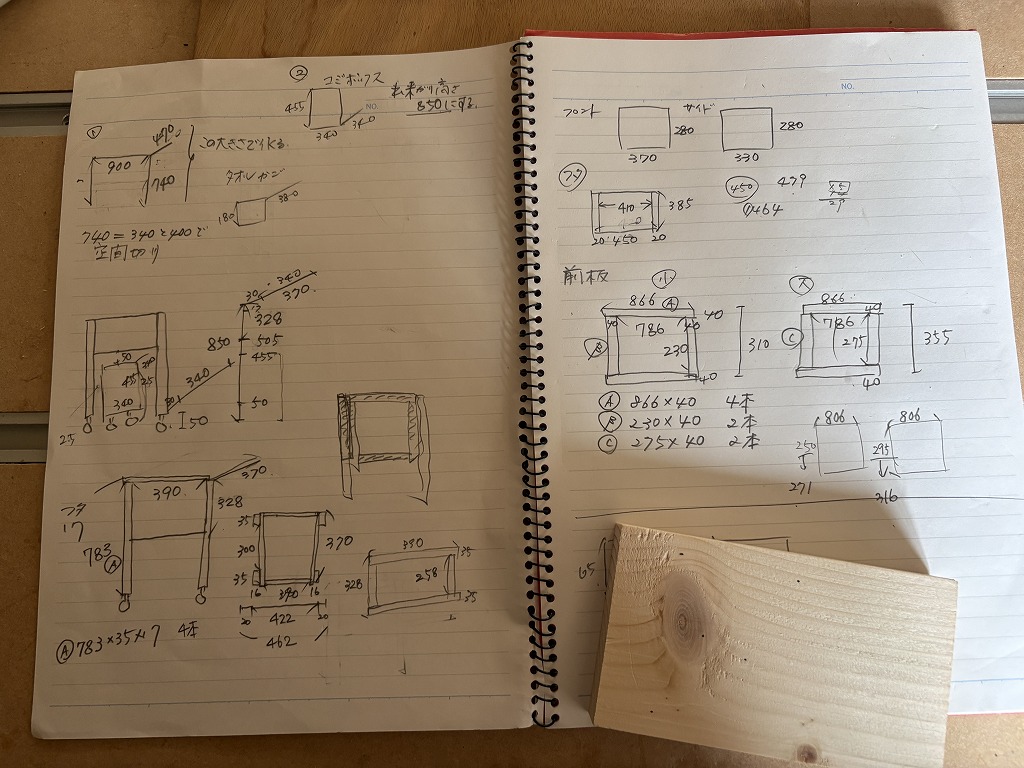 ②
ゴミボックス
出来あがり高さ
850にする.
455
340
340
NO.
①
470
900
740
この大きさで作る.
タオルかご
180
380
740=340と400で
空間切り
340
370.
30
328
850
505
455
50
340
50
455
340
25
150
フタ
17
390.
370.
328
783
Ⓐ
35
300
35
370
16
390
16
20
422
20
462
390
35
328
258
35
Ⓐ 783×35×17 4本
NO.
フロント
サイド
280
280
370
330
フタ
410
385
20
450
20
450
479
464
29
前板
小
大
866
Ⓐ
40
786
40
40
230
310
40
866
40
786
Ⓒ
275
355
40
Ⓐ 866×40 4本
Ⓑ 230×40 2本
Ⓒ 275×40 2本
806
806
250
295
271
316
65.